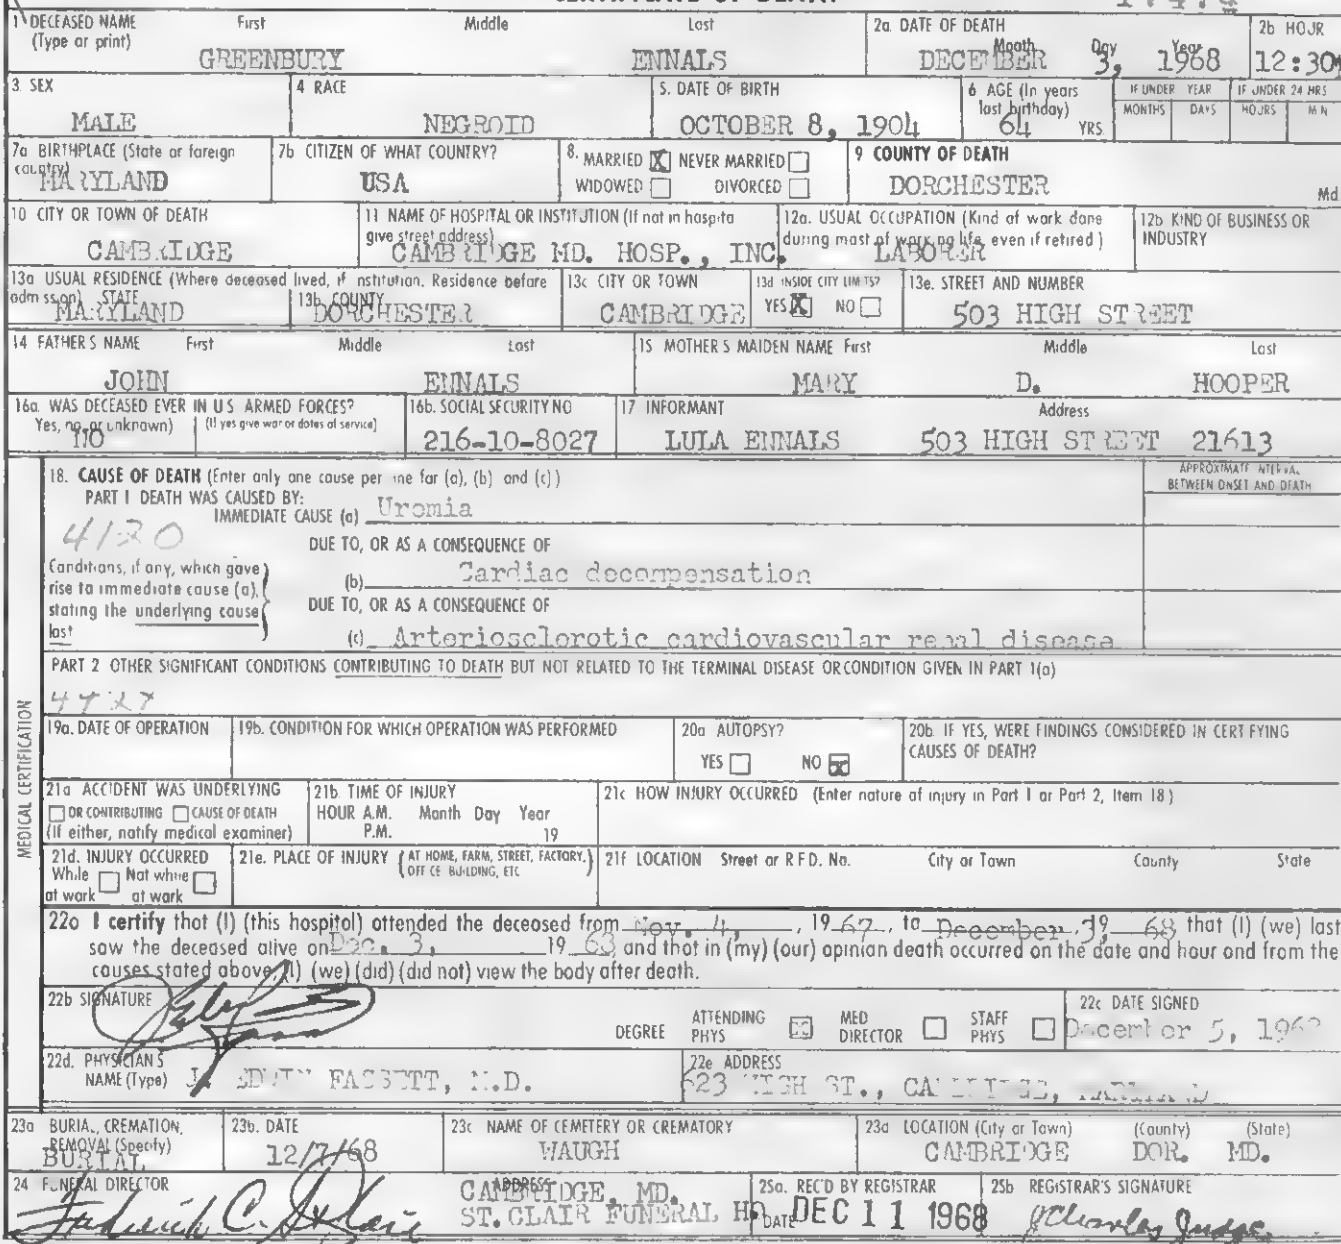 1 DECEASED NAME First Middle Last
(Type or print)
GREENBURY ENNALS
2a. DATE OF DEATH
Month Day Year
DECEMBER 3, 1968
2b HOUR
12:30
3. SEX
MALE
4 RACE
NEGROID
5. DATE OF BIRTH
OCTOBER 8, 1904
6 AGE (In years
last birthday)
64 YRS
IF UNDER YEAR
MONTHS DAYS
IF UNDER 24 HRS
HOURS M N
7a BIRTHPLACE (State or foreign
country)
MARYLAND
7b CITIZEN OF WHAT COUNTRY?
USA
8. MARRIED X NEVER MARRIED
WIDOWED DIVORCED
9 COUNTY OF DEATH
DORCHESTER
Md
10 CITY OR TOWN OF DEATH
CAMBRIDGE
11 NAME OF HOSPITAL OR INSTITUTION (If not in hospita
give street address)
CAMBRIDGE MD. HOSP., INC.
12a. USUAL OCCUPATION (Kind of work done
during most of working life, even if retired)
LABORER
12b KIND OF BUSINESS OR
INDUSTRY
13a USUAL RESIDENCE (Where deceased lived, if nstitution. Residence before
adm ss on) STATE
MARYLAND
13b. COUNTY
DORCHESTER
13c CITY OR TOWN
CAMBRIDGE
13d INSIDE CITY LIM TS?
YES X NO
13e. STREET AND NUMBER
503 HIGH STREET
14 FATHER S NAME First Middle Last
JOHN ENNALS
15 MOTHER S MAIDEN NAME First Middle Last
MARY D. HOOPER
16a. WAS DECEASED EVER IN U S ARMED FORCES?
Yes, no, or unknown) (If yes give war or dates of service)
NO
16b. SOCIAL SECURITY NO
216-10-8027
17 INFORMANT Address
LULA ENNALS 503 HIGH STREET 21613
18. CAUSE OF DEATH (Enter only one cause per ine for (a), (b) and (c))
APPROXIMATE INTERVAL
BETWEEN ONSET AND DEATH
PART I DEATH WAS CAUSED BY:
IMMEDIATE CAUSE (a) Uremia
4120
DUE TO, OR AS A CONSEQUENCE OF
Conditions, if any, which gave
rise to immediate cause (a),
stating the underlying cause
last
(b) Cardiac decompensation
DUE TO, OR AS A CONSEQUENCE OF
(c) Arteriosclerotic cardiovascular renal disease
PART 2 OTHER SIGNIFICANT CONDITIONS CONTRIBUTING TO DEATH BUT NOT RELATED TO THE TERMINAL DISEASE OR CONDITION GIVEN IN PART 1(a)
MEDICAL CERTIFICATION
19a. DATE OF OPERATION
19b. CONDITION FOR WHICH OPERATION WAS PERFORMED
20a AUTOPSY?
YES NO X
20b. IF YES, WERE FINDINGS CONSIDERED IN CERT FYING
CAUSES OF DEATH?
21a ACCIDENT WAS UNDERLYING
OR CONTRIBUTING CAUSE OF DEATH
(If either, notify medical examiner)
21b. TIME OF INJURY
HOUR A.M. Month Day Year
P.M. 19
21c HOW INJURY OCCURRED (Enter nature of injury in Part 1 or Part 2, Item 18)
21d. INJURY OCCURRED
While Not while
at work at work
21e. PLACE OF INJURY (AT HOME, FARM, STREET, FACTORY,
OFF CE BUILDING, ETC
21f LOCATION Street or R F D. No. City or Town County State
22a I certify that (I) (this hospital) attended the deceased from Nov. 4, , 19 67, to December 3, 19 68 that (I) (we) last
saw the deceased alive on Dec. 3, 19 68 and that in (my) (our) opinion death occurred on the date and hour and from the
causes stated above (I) (we) (did) (did not) view the body after death.
22b SIGNATURE
DEGREE
ATTENDING
PHYS
MED
DIRECTOR
STAFF
PHYS
22c DATE SIGNED
December 5, 1968
22d. PHYSICIAN S
NAME (Type) J. EDWIN FASSETT, M.D.
22e ADDRESS
623 HIGH ST., CAMBRIDGE, MARYLAND
23a BURIAL, CREMATION,
REMOVAL (Specify)
BURIAL
23b. DATE
12/7/68
23c NAME OF CEMETERY OR CREMATORY
WAUGH
23d LOCATION (City or Town) (County) (State)
CAMBRIDGE DOR. MD.
24 FUNERAL DIRECTOR
Frederick C. St. Clair
ADDRESS
CAMBRIDGE, MD.
ST. CLAIR FUNERAL H
25a. REC'D BY REGISTRAR
DATE DEC 11 1968
25b REGISTRAR'S SIGNATURE
J Charles Judge